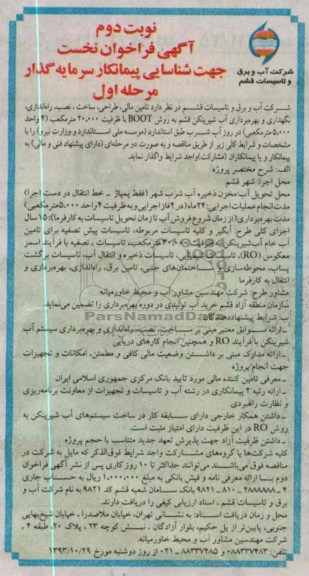 نوبت دوم
آگهی فراخوان نخست
جهت شناسایی پیمانکار سرمایه گذار
مرحله اول
شرکت آب و برق
و تاسیسات قشم
شرکت آب و برق و تاسیسات قشم در نظر دارد تامین مالی، طراحی، ساخت، نصب، راه‌اندازی،
نگهداری و بهره‌برداری آب شیرین‌کن قشم به روش BOOT با ظرفیت ۲۰،۰۰۰ مترمکعب (۴ واحد
۵،۰۰۰ مترمکعبی) در روز آب شرب طبق استاندارد (موسسه ملی استاندارد و وزارت نیرو) را با
مشخصات و شرایط کلی زیر از طریق مناقصه و به صورت دو مرحله‌ای (دارای پیشنهاد فنی و مالی) به
پیمانکار و یا پیمانکاران (مشارکت) واجد شرایط واگذار نماید.
الف: شرح مختصر پروژه
محل اجرا: شهر قشم
محل تحویل آب: مخزن ذخیره آب شرب شهر (فقط پمپاژ - خط انتقال در دست اجرا)
مدت انجام عملیات اجرایی: ۲۴ ماه (در ۴ فاز اجرایی و به ظرفیت ۴ واحد ۵،۰۰۰ مترمکعبی)
مدت بهره‌برداری: (از زمان شروع فروش آب تا زمان تحویل تاسیسات به کارفرما): ۱۵ سال
اجزای کلی طرح: آبگیر و کلیه تاسیسات مربوطه، تاسیسات پیش تصفیه برای تامین
آب خام آب شیرین‌کن به ظرفیت ۲۰،۰۰۰ مترمکعب، تاسیسات، تصفیه با فرآیند اسمز
معکوس (RO)، تاسیسات نهایی، تاسیسات ذخیره و انتقال آب، تاسیسات برگشت
پساب، محوطه‌سازی، ساختمان‌های جنبی، تامین برق، راه‌اندازی، بهره‌برداری و
انتقال به کارفرما
مشاور طرح: شرکت مهندسین مشاور آب و محیط خاورمیانه
سازمان منطقه آزاد قشم خرید آب تولیدی در دوره بهره‌برداری را تضمین می‌نماید.
ب: شرایط پیشنهاددهندگان
ـ ارائه سوابق معتبر مبنی بر ساخت، نصب، راه‌اندازی و بهره‌برداری سیستم آب
شیرین‌کن با فرآیند RO و همچنین انجام کارهای دریایی
ـ ارائه مدارک مبنی بر داشتن وضعیت مالی کافی و مطمئن، امکانات و تجهیزات
جهت انجام پروژه
ـ معرفی تامین کننده مالی مورد تایید بانک مرکزی جمهوری اسلامی ایران
ـ ارائه رتبه ۲ پیمانکاری در رشته آب و تاسیسات و تجهیزات از معاونت برنامه‌ریزی
و نظارت راهبردی
ـ داشتن همکار خارجی دارای سابقه کار در ساخت سیستم‌های آب شیرین‌کن به
روش RO در این ظرفیت دارای امتیاز مثبت است.
ـ داشتن ظرفیت آزاد جهت پذیرش تعهد جدید متناسب با حجم پروژه
کلیه شرکت‌ها یا گروه‌های مشارکت واجد شرایط فوق‌الذکر که مایل به شرکت در
مناقصه فوق می‌باشند می‌توانند حداکثر تا ۱۰ روز کاری پس از نشر آگهی فراخوان
دوم با ارائه معرفی نامه و فیش بانکی به مبلغ ۱،۰۰۰،۰۰۰ ریال به حساب جاری
بانک سامان شعبه قشم کد ۹۸۲۱ به نام شرکت آب و
برق و تاسیسات قشم، اسناد ارزیابی کیفی را دریافت دارند.
محل و زمان دریافت اسناد: به نشانی تهران، خیابان ملاصدرا، خیابان شیخ‌بهایی
جنوبی، پایین‌تر از پل حکیم، بلوار آزادگان، نبش کوچه ۲۳، پلاک ۲۰، طبقه ۴،
شرکت مهندسین مشاور آب و محیط خاورمیانه
تلفن: ۰۲۱-۸۸۳۳۷۴۸۵ و ۸۸۳۳۷۴۸۳ از روز دوشنبه مورخ ۱۳۹۳/۱۰/۲۹
ParsNamadData